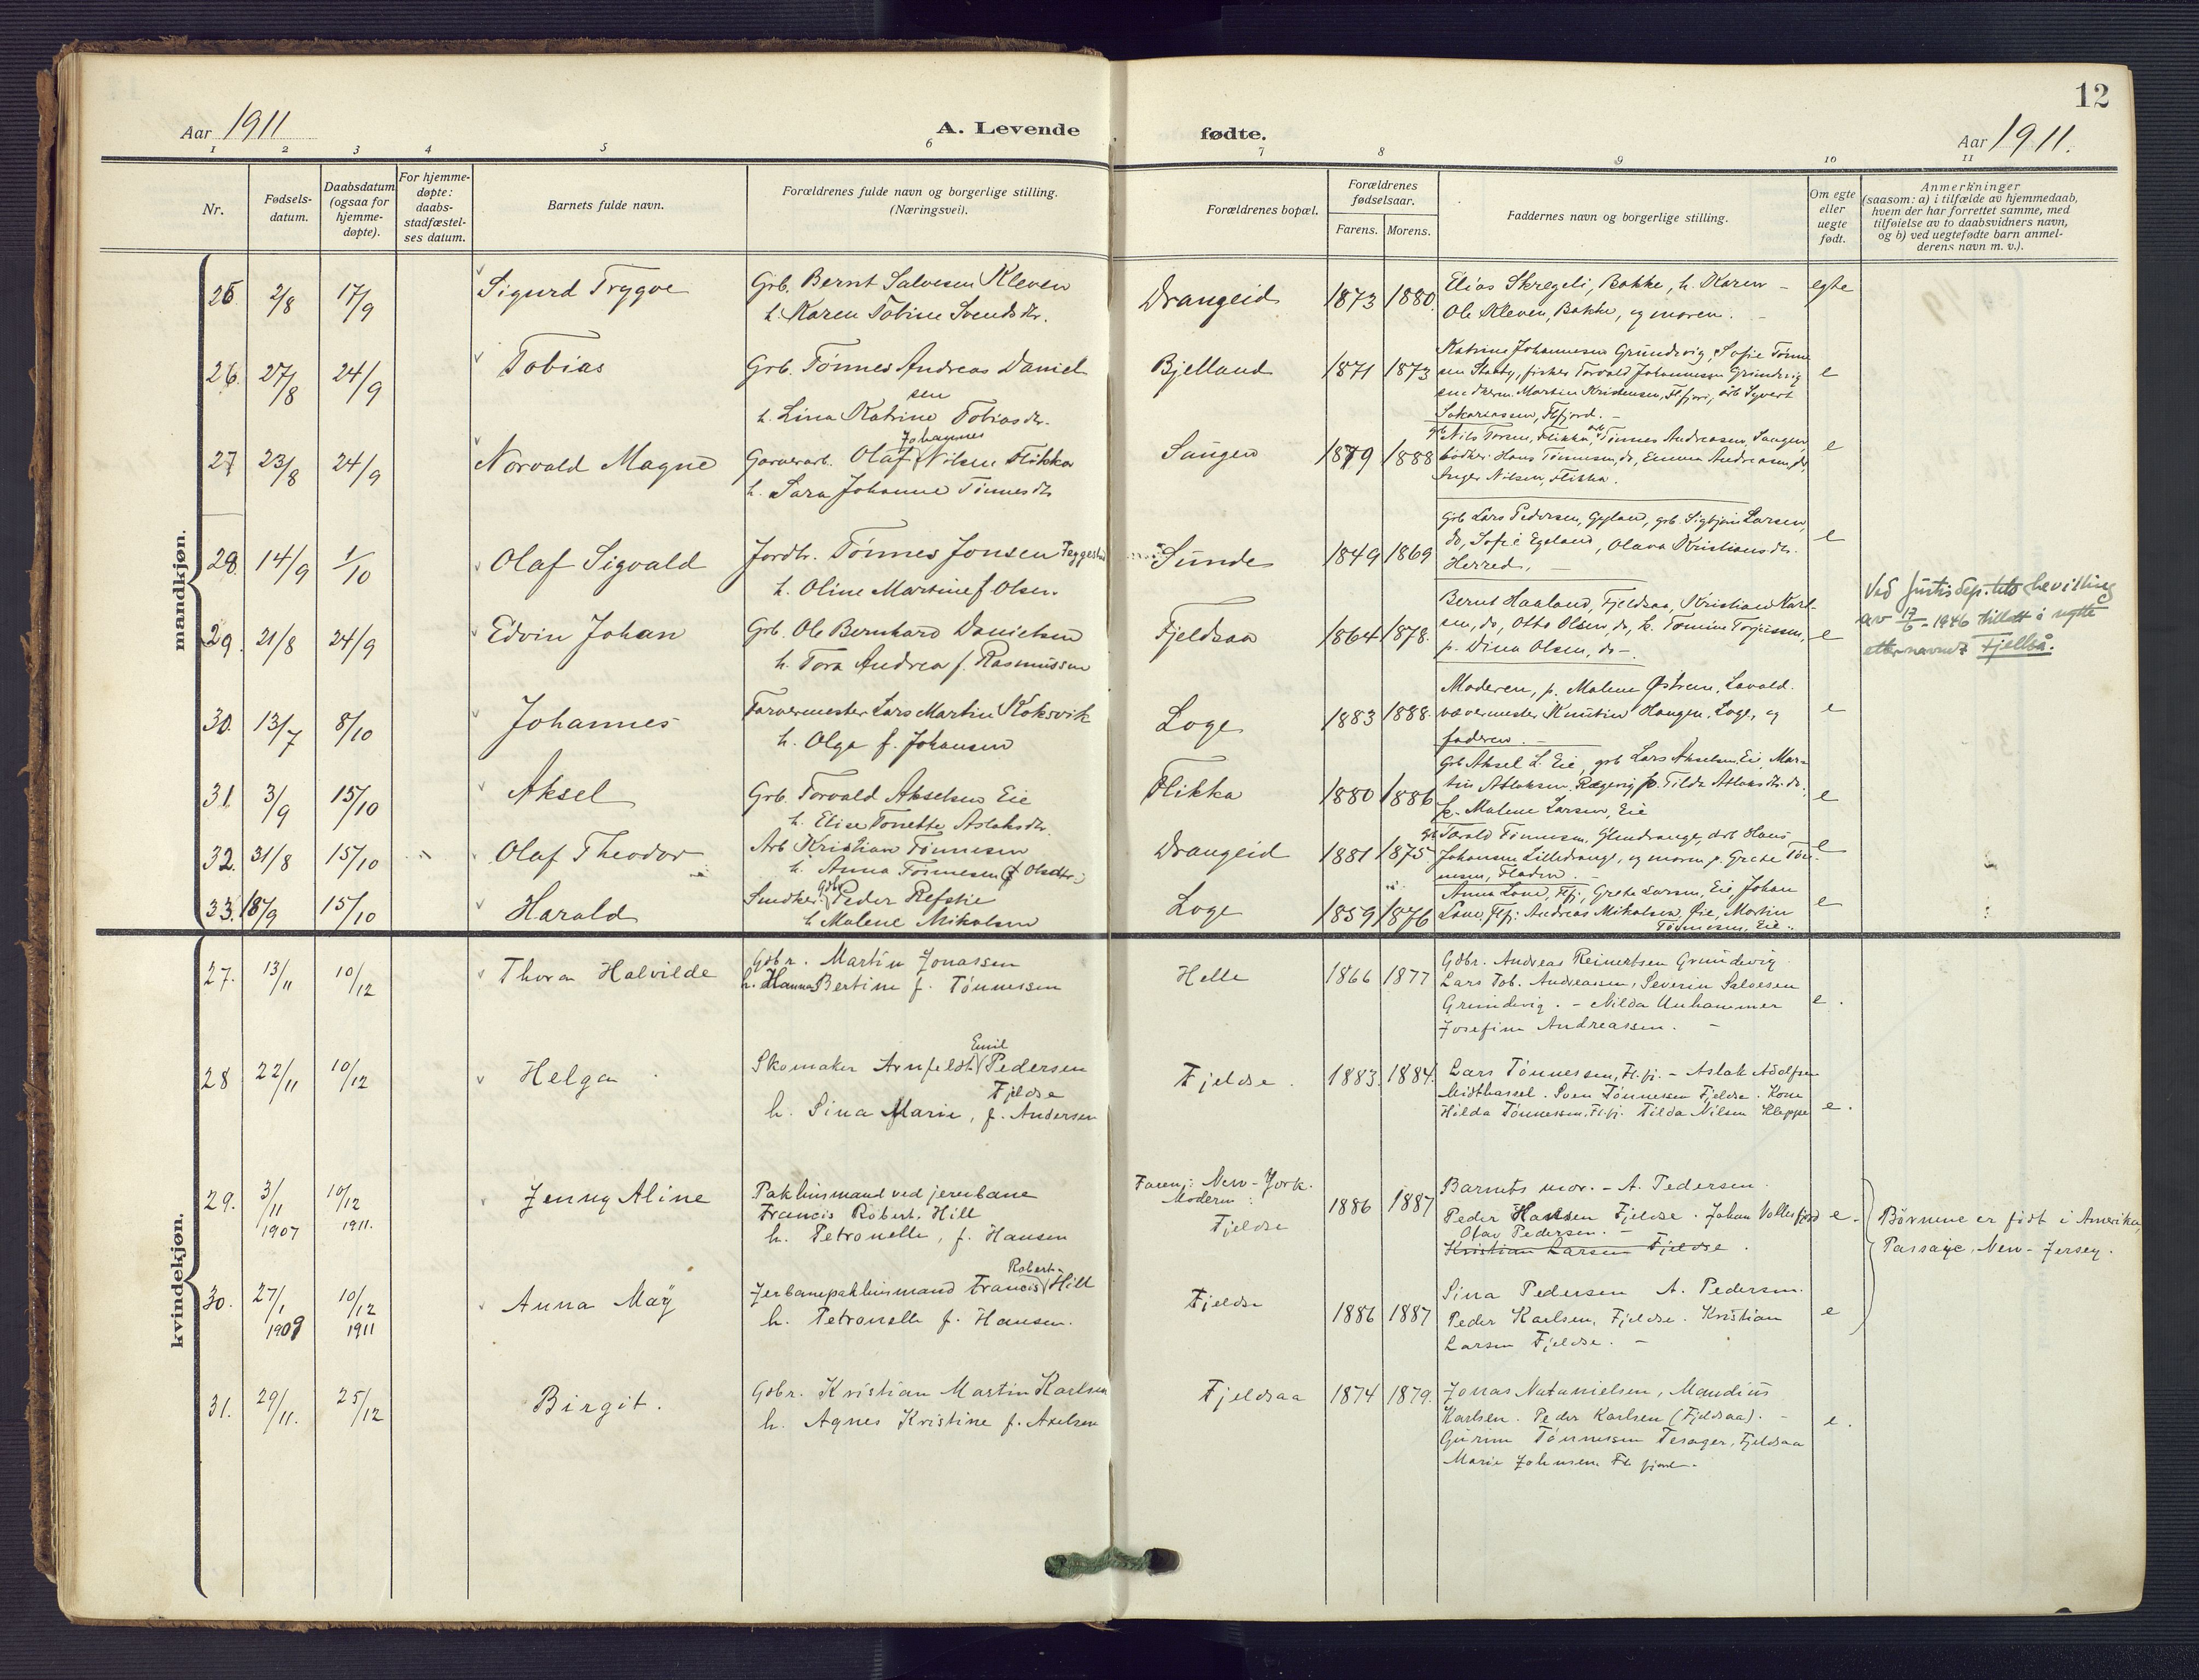 12
Aar 1911
A. Levende
fødte.
Aar 1911.
1 2 3 4 5 6 7 8 9 10 11
Nr.
Fødsels-
datum.
Daabsdatum
(ogsaa for
hjemme-
døpte).
For hjemme-
døpte:
daabs-
stadfæstel-
ses datum.
Barnets fulde navn.
Forældrenes fulde navn og borgerlige stilling.
(Næringsvei).
Forældrenes bopæl.
Forældrenes
fødselsaar.
Farens. Morens.
Faddernes navn og borgerlige stilling.
Om egte
eller
uegte
født.
Anmerkninger
(saasom: a) i tilfælde av hjemmedaab,
hvem der har forrettet samme, med
tilføielse av to daabsvidners navn,
og b) ved uegtefødte barn anmel-
derens navn m. v.).
mandkjøn.
25 2/8 17/9 Sigurd Trygve
Grb. Bernt Salvesen Kleven
h. Karen Tobine Svendsdtr.
Drangeid 1873 1880
Elias Skregeli, Bakke, h. Karen -
Ole Kleven, Bakke, og moren. -
egte
26. 27/8 24/9 Tobias
Grb. Tønnes Andreas Daniel
sen
h. Lina Katrine Tobiasdtr.
Bjelland 1871 1873
Katrine Johannesen Grundevig, Sofie Tønne
sen, fisker Torvald Johannesen Grundevig
Martin Kristensen, Flfjord, arb Syvert
Sakariassen, Flfjord. -
e
27 23/8 24/9 Norvald Magne
Garverarb. Olaf Johannes Nilsen Flikka
h. Sara Johanne Tønnesdtr
Saugen 1879 1888
grb Nils Torsen, Flikka, arb. Tønnes Andreasen, Saugen,
bødker Hans Tønnesen, do, Emma Andreasen, do
Inger Nilsen, Flikka.
e
28. 14/9 1/10 Olaf Sigvald
Jordbr. Tønnes Jonsen Teggestad
h. Oline Martine f Olsen.
Sunde 1849 1869
Grb Lars Pedersen, Gyland, grb. Sigbjørn Larsen,
do, Sofie Egeland, Olava Kristiansdtr.
Herred. -
e
29. 21/8 24/9 Edvin Johan
Grb. Ole Bernhard Danielsen
h. Tora Andrea f. Rasmussen
Fjeldsaa 1864 1878.
Bernt Haaland, Fjeldsaa, Kristian Karl-
sen, do, Otto Olsen, do, k. Tomine Torjussen,
p. Dina Olsen, do -.
e
Ved Justisdep.tets bevilling
av 17/6 - 1946 tillatt å nytte
etternavnet Fjellså.
30. 13/7 8/10 Johannes
Farvermester Lars Martin Koksvik
h. Olga f. Johansen
Loge 1883 1888.
Moderen, p. Malene Østrem, Lavold.
vævermester Knutin Haugen, Loge, og
faderen. -
e
31. 3/9 15/10 Aksel
Grb. Torvald Akselsen Eie
h. Elise Tonette Aslaksdtr.
Flikka 1880 1886
Grb Aksel L. Eie, grb Lars Akselsen Eie, Mar-
tin Atlaksen, Rægevig p. Tilda Atlaksdtr. do.
p. Malene Larsen, Eie
e
32. 31/8 15/10 Olaf Theodor
Arb Kristian Tønnesen
h. Anna Tønnesen (f Olsdtr.)
Drangeid 1881 1875
grb Torald Tønnesen, Glendrange, arb Hans
Johansen Lilledrange, og moren p. Grete Tøn-
nesen, Fladen. -
e
33. 18/9 15/10 Harald
Snedker Gdbr Peder Refstie
h Malene Mikalsen
Loge 1859 1876
Anna Lone, Flfj, Grete Larsen, Eie Johan
Lone, Flfj: Andreas Mikalsen, Øie, Martin
Tønnesen, Eie.
e
kvindekjøn.
27. 13/11 10/12 Thora Halvilde
Gdbr. Martin Jonassen
h. Hanna Bertine f. Tønnessen
Helle 1866 1877
Gdbr. Andreas Reinertsen Grundevig
Lars Tob. Andreassen, Severin Salvesen
Grundevig. - Nilda Unhammer
Josefine Andreassen. -
e.
28 22/11 10/12 Helga
Skomaker Arnfeldt Emil Pedersen
Fjeldse
h. Sina Marie, f. Andersen
Fjeldse. 1883. 1884.
Lars Tønnessen, Fl.fj. - Aslak Adolfsen
Midthassel. Sven Tønnessen Fjeldse. Kone
Hilda Tønnessen, Fl.fj. Tilda Nilsen Kleppe
e.
29. 3/11 1907 10/12 1911. Jenny Aline
Pakhusmand ved jernbane
Francis Robert. Hill
h. Petronelle, f. Hansen
Faren: New-York.
Moderen:
Fjeldse
1886 1887
Barnets mor. - A. Pedersen.
Peder Hansen Fjeldse. Johan Vollesfjord
Olav Pedersen. -
Kristian Larsen Fjeldse.
e.
Børnene er født i Amerika,
Passaic, New-Jersey.
30. 27/1 1909 10/12 1911 Anna May
Jernbanepakhusmand Francis Robert Hill
h. Petronelle f. Hansen.
Fjeldse 1886 1887
Sina Pedersen A. Pedersen.
Peder Karlsen, Fjeldse. Kristian
Larsen Fjeldse. -
e
31. 29/11. 25/12 Birgit.
Gdbr. Kristian Martin Karlsen
h. Agnes Kristine f. Axelsen
Fjeldsaa 1874 1879.
Jonas Natanielsen, Maudius
Karlsen. Peder Karlsen (Fjeldsaa). -
Gurine Tønnesen Tesager, Fjeldsaa
Marie Johnsen Flfjord.
e.